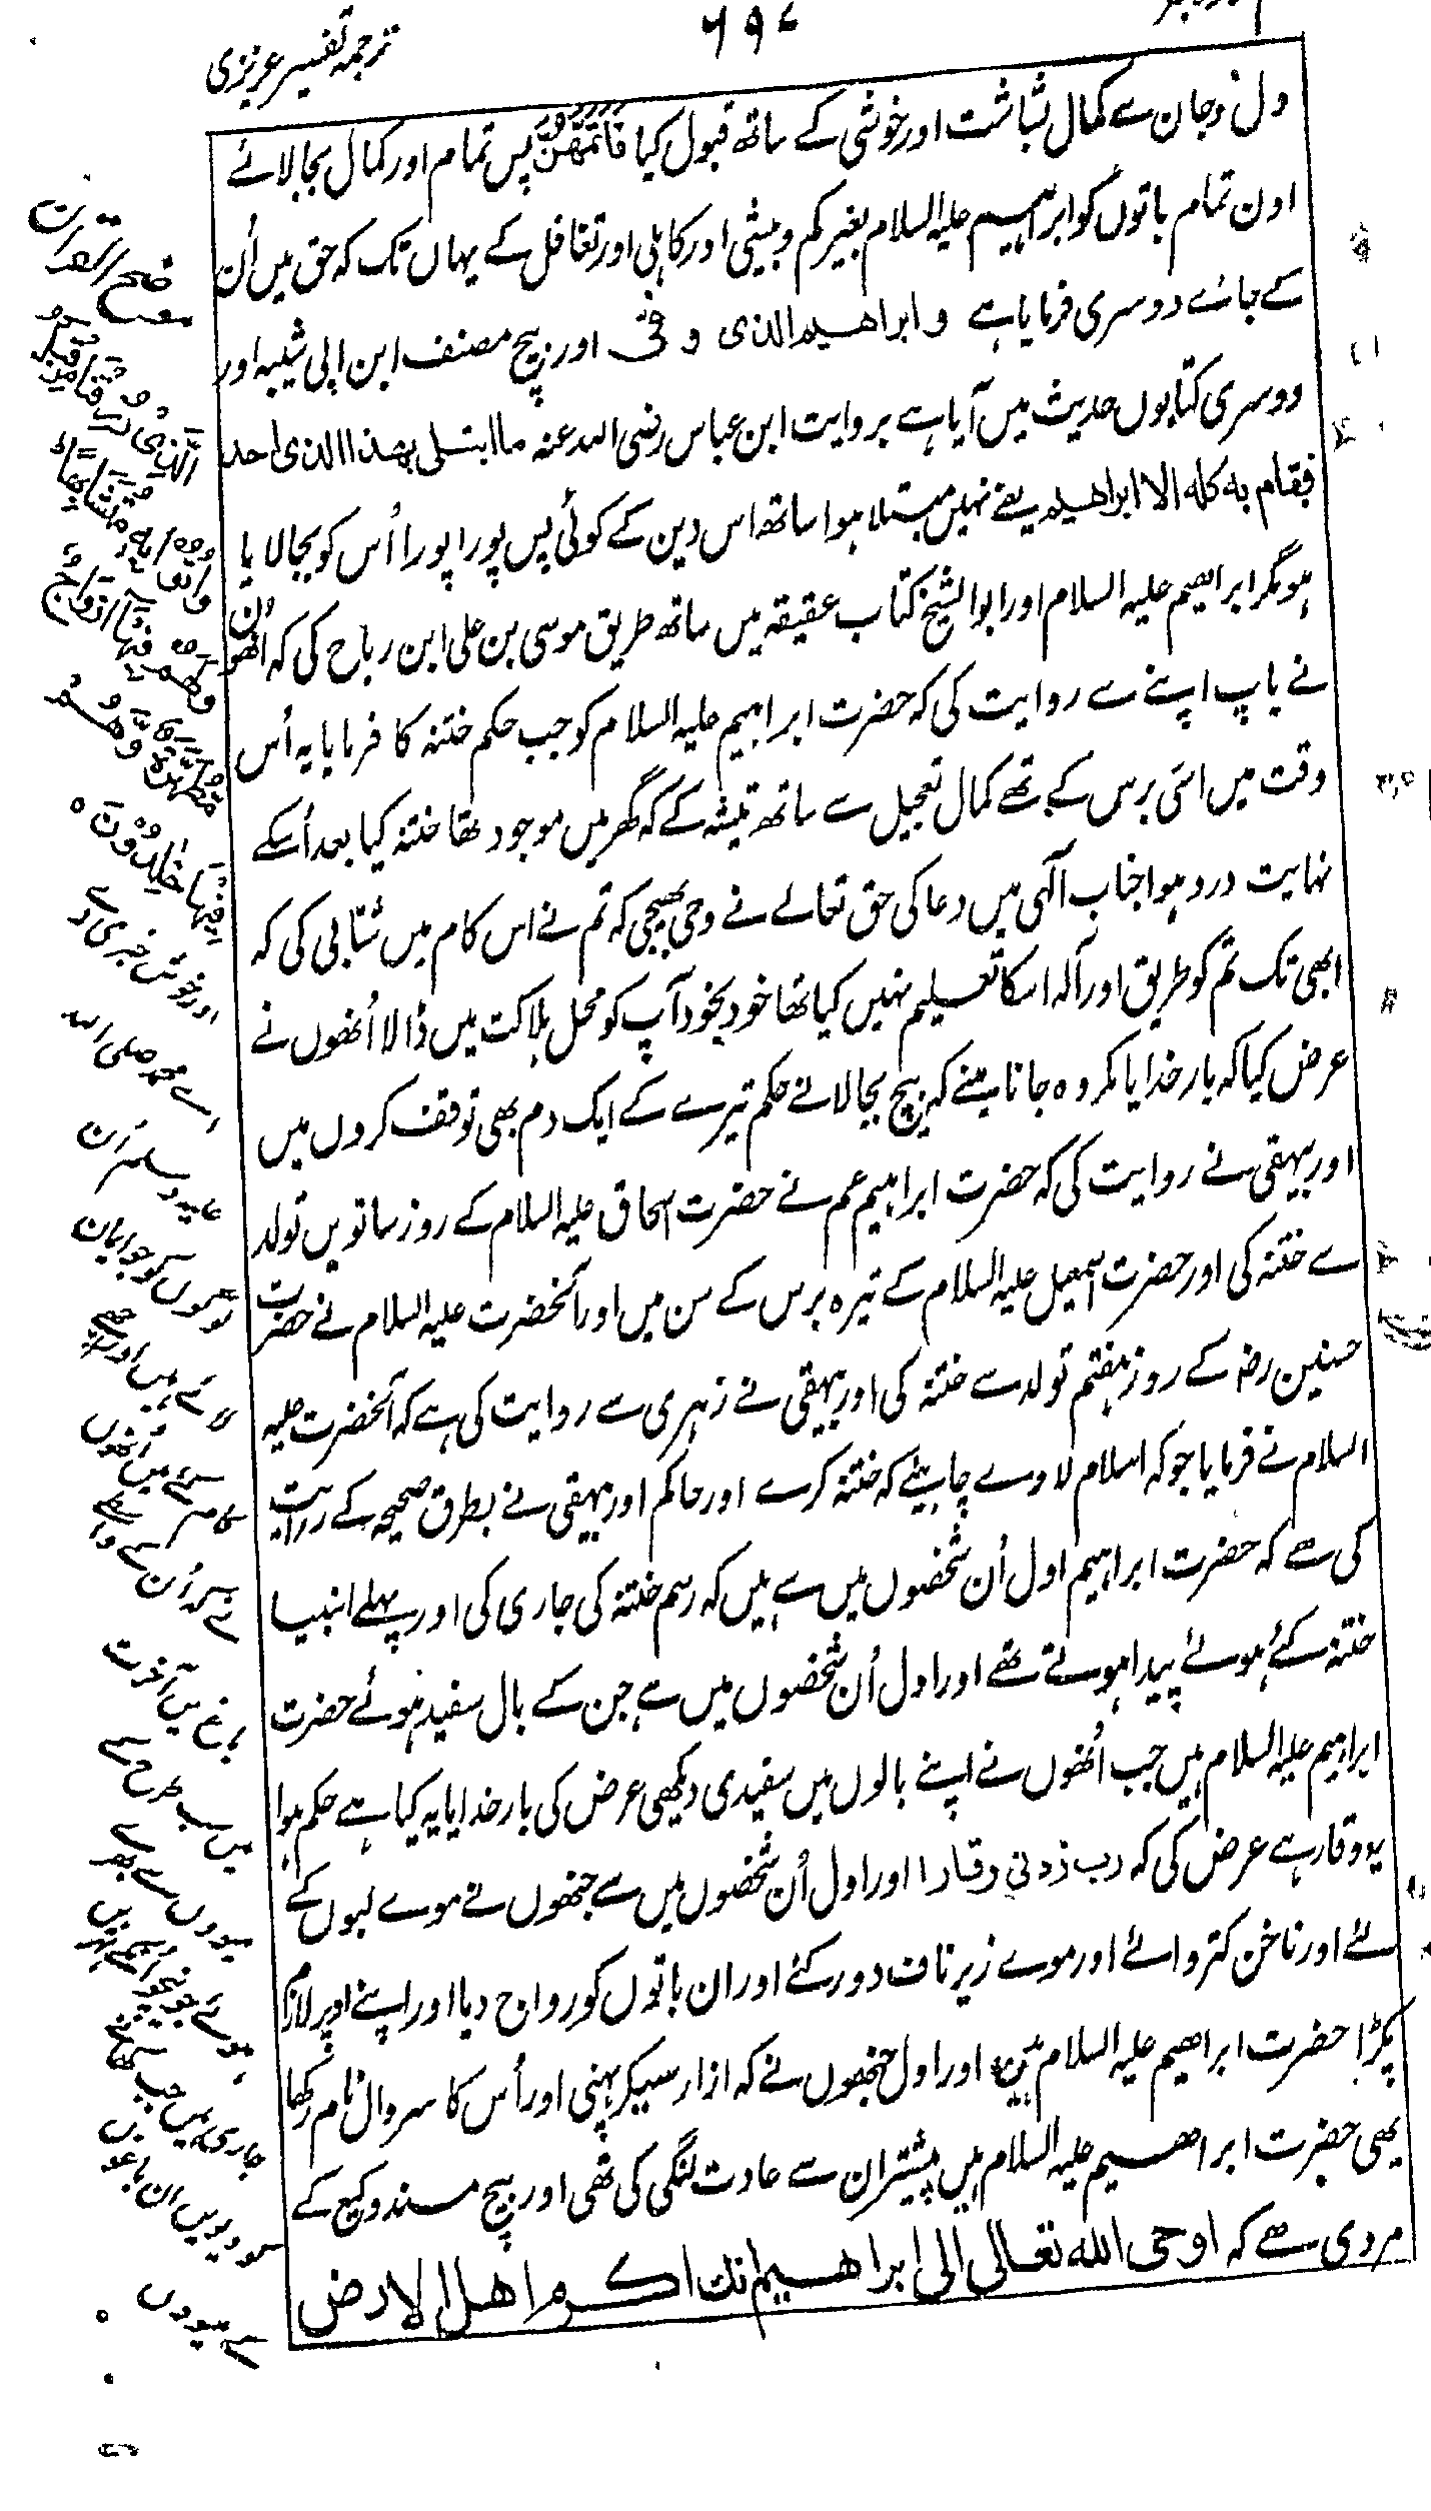 ترجمہ تفسیر عزیزی
۶۹۷
دل وجان سے کمال بشاشت اور خوشی کے ساتھ قبول کیا فَأَتَمَّهُنَّ پس تمام اور کمال بجالائے
اون تمام باتوں کو ابراہیم علیہ السلام بغیر کم وبیشی اور کاہلی اور تغافل کے یہاں تک کہ حق میں اُن
کے جائے دوسری فرمایا ہے وابراهيم الذى وفى اور بیچ مصنف ابن ابی شیبہ اور
دوسری کتابوں حدیث میں آیا ہے بروایت ابن عباس رضی اللہ عنہ ما ابتلى بهذا الذى احد
فقام به كله الا ابراهيم یعنے نہیں مبتلا ہوا ساتھ اس دین کے کوئی پس پورا پورا اُس کو بجالایا
ہو مگر ابراهیم علیہ السلام اور ابو الشیخ کتاب عقیقہ میں ساتھ طریق موسی بن علی ابن رباح کی کہ انھوں
نے باپ اپنے سے روایت کی کہ حضرت ابراہیم علیہ السلام کو جب حکم ختنہ کا فرمایا یہ اُس
وقت میں اسّی برس کے تھے کمال تعجیل سے ساتھ تیشہ کے کہ گھر میں موجود تھا ختنہ کیا بعد اُسکے
نہایت درد ہوا جناب آلہی میں دعا کی حق تعالے نے وحی بھیجی کہ تم نے اس کام میں شتابی کی کہ
ابھی تک تم کو طریق اور آلہ اسکا تعلیم نہیں کیا تھا خود بخود آپ کو محل ہلاکت میں ڈالا اُنھوں نے
عرض کیا کہ بار خدایا مکروہ جانا مینے کہ بیچ بجالانے حکم تیرے کے ایک دم بھی توقف کروں میں
اور بیہقی نے روایت کی کہ حضرت ابراہیم عم نے حضرت اسحاق علیہ السلام کے روز ساتویں تولد
سے ختنہ کی اور حضرت اسمعیل علیہ السلام کے تیرہ برس کے سن میں اور آنحضرت علیہ السلام نے حضرت
حسنین رضہ کے روز ہفتم تولد سے ختنہ کی اور بیہقی نے زہری سے روایت کی ہے کہ آنحضرت علیہ
السلام نے فرمایا جو کہ اسلام لاوے چاہیئے کہ ختنہ کرے اور حاکم اور بیہقی نے بطرق صحیحہ کے روایت
کی ہے کہ حضرت ابراہیم اول اُن شخصوں میں سے ہیں کہ رسم ختنہ کی جاری کی اور پہلے انبیا
ختنہ کئے ہوئے پیدا ہوتے تھے اور اول اُن شخصوں میں سے جن کے بال سفید ہوئے حضرت
ابراہیم علیہ السلام ہیں جب اُنھوں نے اپنے بالوں میں سفیدی دیکھی عرض کی بار خدایا یہ کیا ہے حکم ہوا
یہ وقار ہے عرض کی کہ رب زدنی وقارا اور اول اُن شخصوں میں سے جنھوں نے موے لبوں کے
لئے اور ناخن کتروائے اور موے زیر ناف دور کئے اور ان باتوں کو رواج دیا اور اپنے اوپر لازم
پکڑا حضرت ابراهیم علیہ السلام ہیں اور اول جنھوں نے کہ ازار سیکر پہنی اور اُس کا سروال نام رکھا
یھی حضرت ابراھیم علیہ السلام ہیں پیشتر ان سے عادت لنگی کی تھی اور بیچ مسند وکیع کے
مروی ہے کہ اوحى الله تعالى الى ابراهيم انك اكرم اهل الارض
الَّذِىْ رُزِقْنَا مِنْ قَبْلُ
وَاُتُوْا بِهٖ مُتَشَابِهًا
وَلَهُمْ فِيْهَا اَزْوَاجٌ
مُطَهَّرَةٌ وَّهُمْ
فِيْهَا خٰلِدُوْنَ
اور خوش خبری دے
اے محمد صلی اللہ
علیہ وسلم اُن
لوگوں کو جو ایمان
لائے ہیں اور
میں آخرت
میں
میووں سے
جاری ہیں جب
ان باغوں
سے میووں